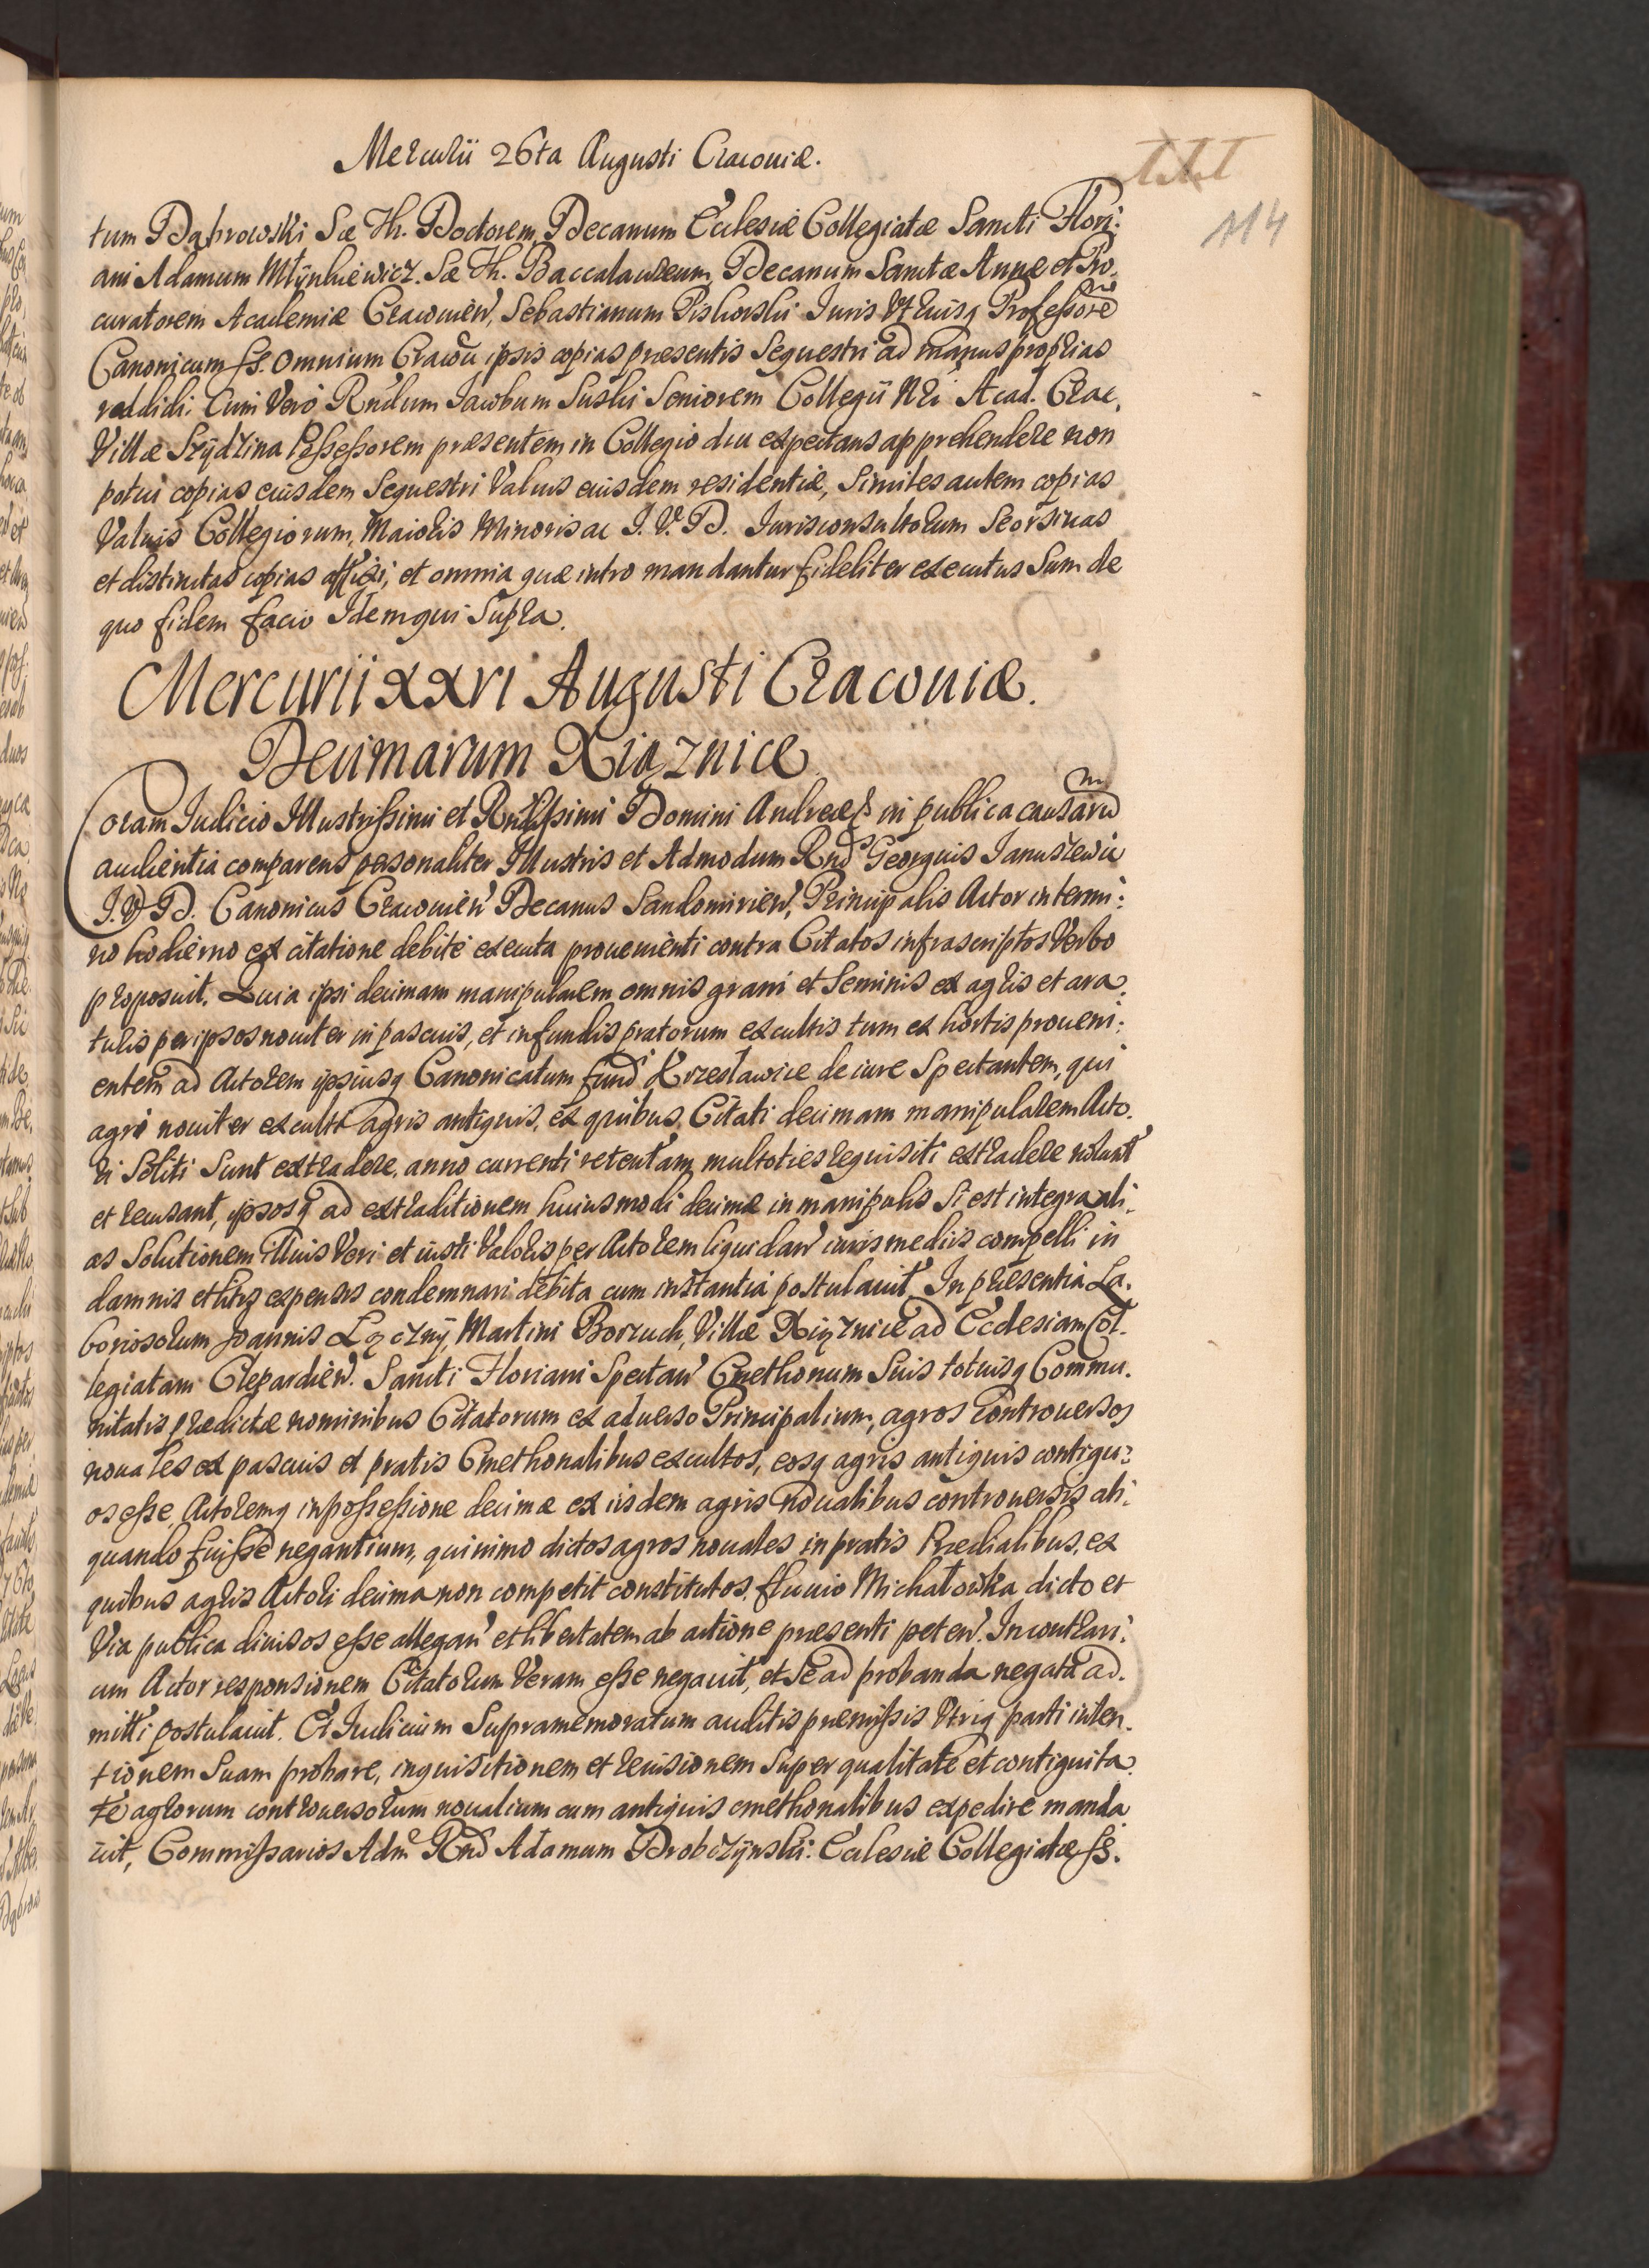 Mercurii 26ta Augusti Cracouiæ.
114
tum Dąbrowski Sæ Th. Doctorem Decanum Ecclesiæ Collegiatæ Sancti Flori:
ani Adamum Młÿnkiewicz. Sæ Th. Baccalaureum, Decanum Sanctæ Annæ et Pro.
curatorem Academiæ Cracouien, Sebastianum Piskorski Juris Vtriusq Professore
Canonicum SS. Omnium Cracou ipsis copias præsentis Sequestri ad manus proprias
reddidi: Cum Vero Rndum Jacobum Suski Seniorem Collegii Nri Acad. Crac.
Villæ Possessorem præsentem in Collegio diu expectans apprehendere non
potui copias eiusdem Sequestri Valuis eiusdem residentiæ, Similes autem copias
Valuis Collegiorum, Maioris Minoris ac J. V. D. Jurisconsultorum Seorsiuas
et distinctas copias affixi, et omnia quæ intro mandantur fideliter executus Sum de
quo fidem facio Idem qui Supra.
Mercurii XXVI Augusti Cracouiæ.
Decimarum Xiąznice
Coram Judicio Illustrissimi et Rndissimi Domini Andreæ in publica causaru
audientia comparens personaliter Illustris et Admodum Rnd Georgius Januszewic
J. V. D. Canonicus Cracouien Decanus Sandomirien, Principalis Actor in termi:
no hodierno ex citatione debite executa prouenienti contra Citatos infrascriptos Verbo
proposuit. Quia ipsi decimam manipularem omnis grani et Seminis ex agris et ara.
tulis per ipsos nouiter in pascuis, et in fundis pratorum excultis tum ex hortis proueni:
entem ad Actorem ipsiusq Canonicatum fund Krzesławice de iure Spectantem, qui
agri nouiter exculti agris antiquis, ex quibus Citati decimam manipularem Acto.
ri Soliti Sunt extradere, anno currenti retentam multoties requisiti extradere nolunt
et recusant, ipsosq ad extraditionem huiusmodi decimæ in manipulis Si est integra ali:
as Solutionem illius Veri et iusti Valoris per Actorem liquidan iuris mediis compelli in
damnis et litis expensis condemnari debita cum instantia postulauit. In præsentia La.
boriosorum Joannis Łączny, Martini Borzuch, Villæ Xiąznice ad Ecclesiam Col.
legiatam Clepardien. Sancti Floriani Spectan Cmethonum Suis totiusq Commu.
nitatis prædictæ nominibus Citatorum ex aduerso Principalium, agros Controuersos
nouales ex pascuis et pratis Cmethonalibus excultos, eosq agris antiquis contigu:
os esse, Actoremq in possessione decimæ ex iisdem agris noualibus controuersis ali:
quando fuisse negantium, quinimo dictos agros nouales in pratis Prædialibus, ex
quibus agris Actori decima non competit constitutos, fluuio Michałowka dicto et
Via publica diuisos esse allegan et libertatem ab actione præsenti peten. In contrari:
um Actor responsionem Citatorum Veram esse negauit, et Se ad probanda negata ad.
mitti postulauit. Et Judicium Supramemoratum auditis præmissis Vtriq parti inten.
tionem Suam probare, inquisitionem et reuisionem Super qualitate et contiguita.
te agrorum controuersorum noualium cum antiquis cmethonalibus expedire manda
uit, Commissarios Adm Rnd Adamum Drobczynski: Ecclesiæ Collegiatæ SS.